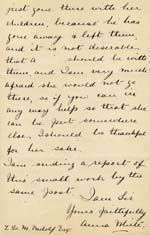 just gone there with her
children, because he has
gone away & left them,
and it is not desirable
that A should be with
them, and I am very much
afraid she would not go
there, so if you can in
any way help so that she
can be put somewhere
else, I should be thankful
for her sake.
I am sending a report of
this small work by the
same post.
I am Sir
Yours faithfully
Anna White.
E. de M. Rudolf Esqr